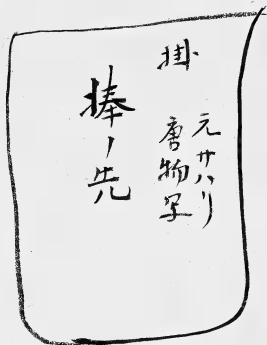 掛
元サハリ
唐物写
捧ノ先